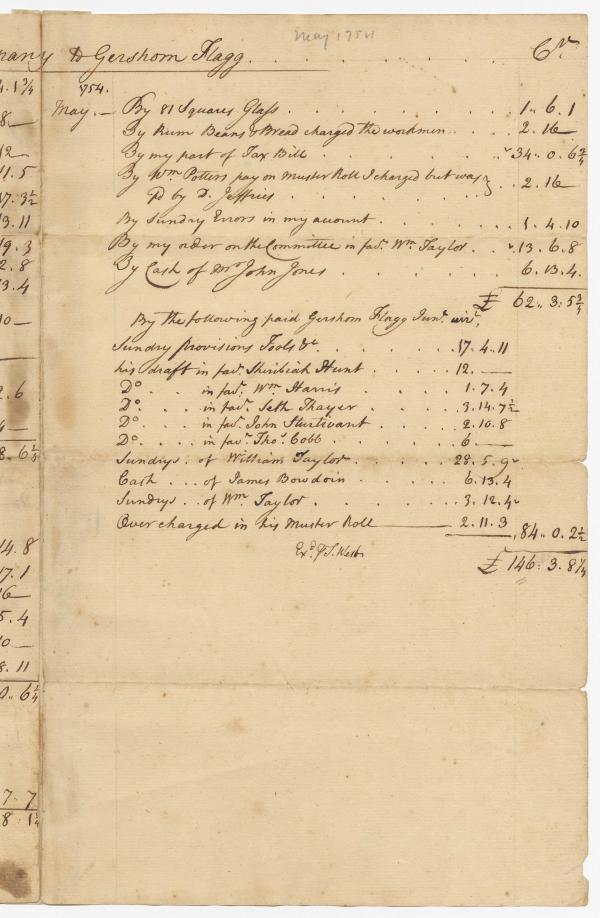 May 1754
pany Dr Gershom Flagg . . . . . . . . Cr
1754.
May. — By 81 Squares Glass . . . . . . . 1.. 6. 1
By Rum Beans & Bread charged the workmen . . . . 2. 16 —
By my part of Tax Bill . . . . . . . 34.. 0. 6 3/4
By Wm Potters pay on Muster Roll I charged but was } . . 2. 16 —
pd by D. Jeffries . . . . .
By Sundry Errors in my account . . . . . 1. 4. 10
By my order on the Committee in favr. Wm Taylor . . 13. 6. 8
By Cash of Mr John Jones . . . . . 6. 13. 4.
£ 62.. 3. 5 3/4
By the following paid Gershom Flagg Junr. vizt.
Sundry provisions Tools &c . . . . . 17. 4. 11
his draft in favr. Sheribiah Hunt . . . . 12. —
Do . . in favr. Wm Harris . . . . . 1. 7. 4
Do . . in favr. Seth Thayer . . . . 3. 14. 7 1/2
Do . . . in favr. John Sturtivant . . . . 2. 10. 8
Do . . . . in favr. Thos. Cobb . . . . . 6 —
Sundrys . of William Taylor . . . . . 28. 5. 9
Cash . . . of James Bowdoin . . . . . 6. 13. 4
Sundrys . . of Wm. Taylor . . . . . . 3. 12. 4
Over charged in his Muster Roll — 2. 11. 3
84. 0. 2 1/2
Exd. p J. West
£ 146. 3. 8 1/4
4. 1 3/4
8 —
12 —
11. 5
17. 3 1/2
13. 11
19. 3
2. 8
13. 4
10 —
2. 6
4 —
14. 8
17. 1
16 —
5. 4
10 —
8. 11
0.. 6 1/4
7. 7